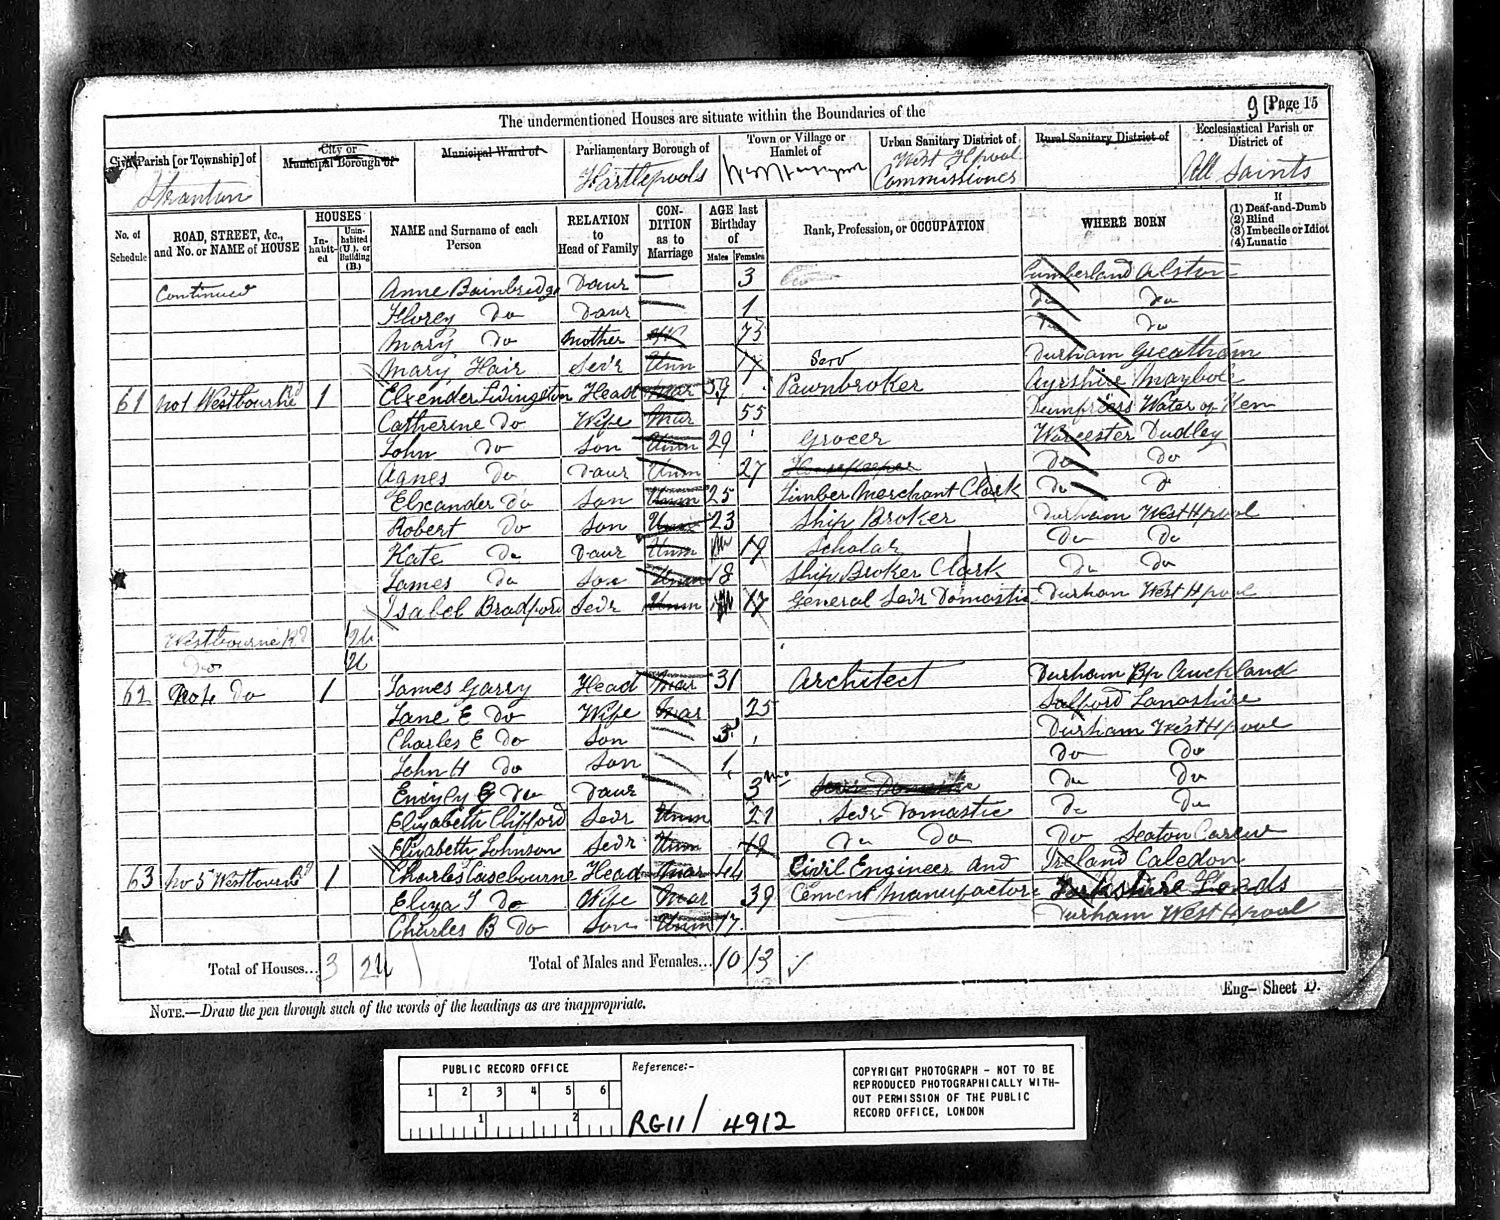 The undermentioned Houses are situate within the Boundaries of the
9 [Page 15
Civil Parish [or Township] of
Stranton
City or
Municipal Borough of
Municipal Ward of
Parliamentary Borough of
Hartlepools
Town or Village or
Hamlet of
Urban Sanitary District of
West Hpool
Commissioners
Rural Sanitary District of
Ecclesiastical Parish or
District of
All Saints
No. of
Schedule
ROAD, STREET, &c.,
and No. or NAME of HOUSE
HOUSES
In-
habit-
ed
Unin-
habited
(U.), or
Building
(B.)
NAME and Surname of each
Person
RELATION
to
Head of Family
CON-
DITION
as to
Marriage
AGE last
Birthday
of
Males
Females
Rank, Profession, or OCCUPATION
WHERE BORN
If
(1) Deaf-and-Dumb
(2) Blind
(3) Imbecile or Idiot
(4) Lunatic
Continued Anne Bainbridge Daur 3 Cumberland Alston
Florey Do Daur 1 Do Do
Mary Do Mother 73 Do Do
Mary Hair Servr Unm 17 Serv Durham Greatham
61 No 1 Westbourne Rd 1 Elxender Livingston Head Mar 59 Pawnbroker Ayrshire Maybole
Catherine Do Wife Mar 55 Dumfriess Water of Ken
John Do Son Unm 29 Grocer Worcester Dudley
Agnes Do Daur Unm 27 Housekeeper Do Do
Elxcander Do Son Unm 25 Timber Merchant Clark Do D
Robert Do Son Unm 23 Ship Broker Durham West Hpool
Kate Do Daur Unm 19 Scholar Do Do
James Do Son Unm 18 Ship Broker Clark Do Do
Isabel Bradford Servr Unm 17 General Servr Domastic Durham West Hpool
Westbourne Rd 1U
Do 1U
62 No 4 Do 1 James Garry Head Mar 31 Architect Durham Bp Auckland
Jane E Do Wife Mar 25 Salford Lanashire
Charles E Do Son 3 Durham West Hpool
John H Do Son 1 Do Do
Emily E Do Daur 3 Mo Do Do
Elizabeth Clifford Servr Unm 21 Servr Domastic Do Do
Elizabeth Johnson Servr Unm 19 Do Do Do Seaton Carew
63 No 5 Westbourne Rd 1 Charles Casebourne Head Mar 44 Civil Engineer and Ireland Caledon
Eliza J Do Wife Mar 39 Cement Manufactore Yorkshire Leeds
Charles B Do Son Unm 17 Durham West Hpool
Total of Houses... 3 2U Total of Males and Females... 10 13
Eng– Sheet D.
NOTE.—Draw the pen through such of the words of the headings as are inappropriate.
PUBLIC RECORD OFFICE
1 2 3 4 5 6
1 2
Reference:-
RG11/ 4912
COPYRIGHT PHOTOGRAPH - NOT TO BE
REPRODUCED PHOTOGRAPHICALLY WITH-
OUT PERMISSION OF THE PUBLIC
RECORD OFFICE, LONDON